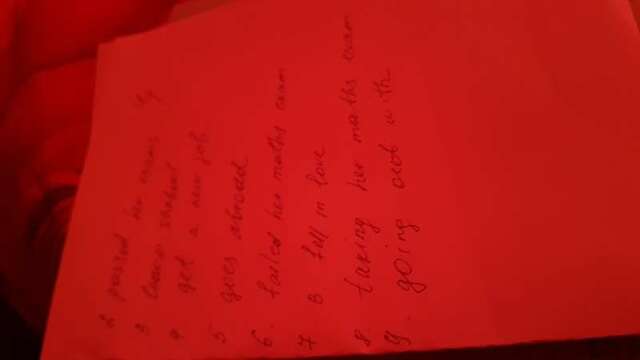 2 passed her exams
3 leave school
4 get a new job
5 goes abroad
6. failed her maths exam
7 B. fell in love
8. taking her maths exam
9. going out with